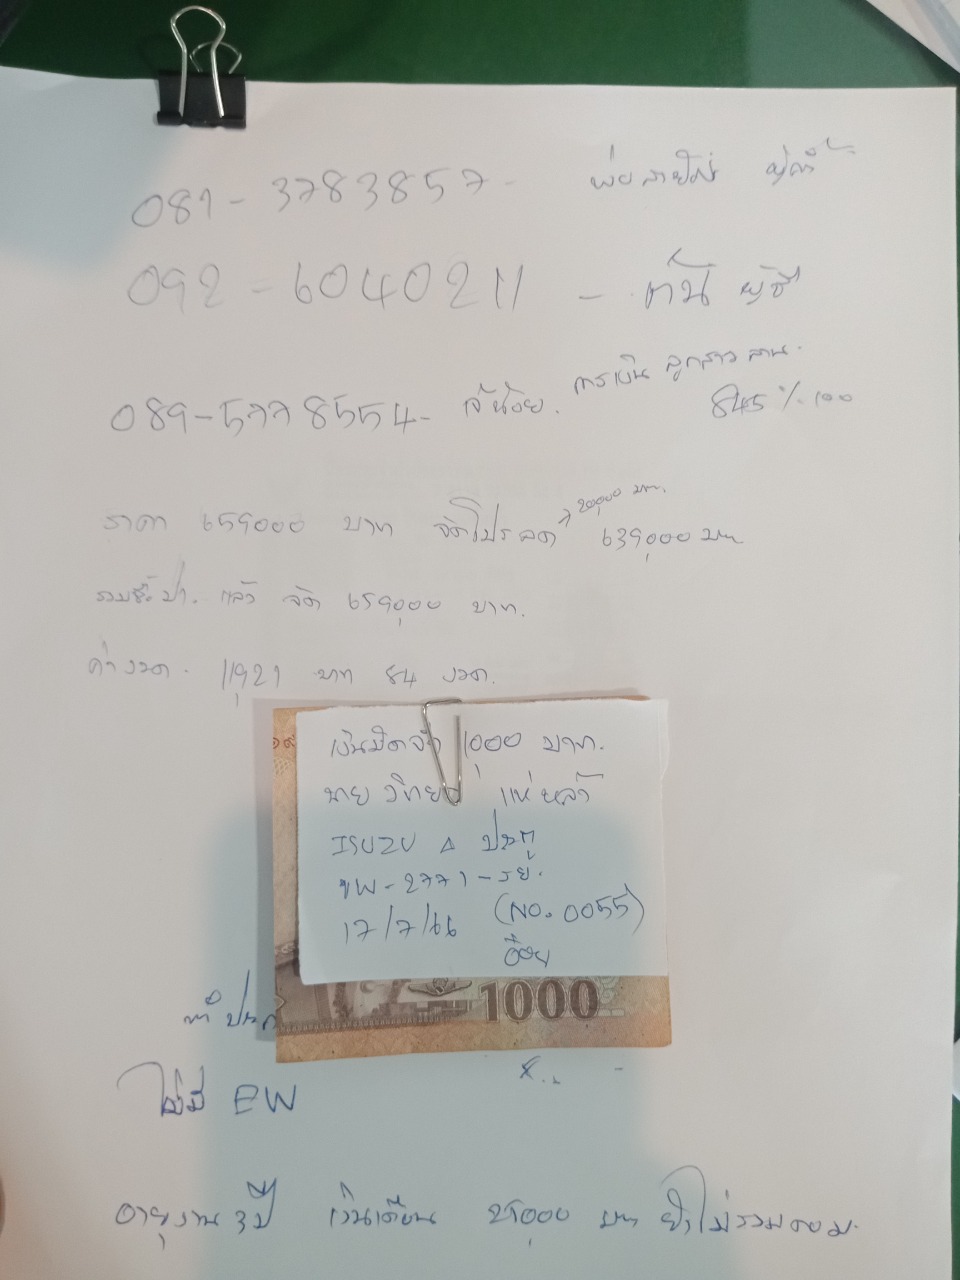 081-3783857-
092-6040211 -
089-5778554- เจ้น้อย. การเงิน ลูกสาว ลาน.
845 % 100
20,000 บาท.
ราคา 659000 บาท จัดโปรลด 639,000 บาท
รวม ป1. แล้ว จัด 659,000 บาท.
ค่างวด. 11,921 บาท 84 งวด.
เงินมัดจำ 1,000 บาท.
นาย วิทยา แห่หล้า
ISUZU 4 ประตู
ขพ-2771-รย.
17/7/66 (NO. 0055)
อ้อย
1000
ทำ ประก
ไม่มี EW
อายุงาน 3 ปี เงินเดือน 25,000 บาท ยังไม่รวมคอม.